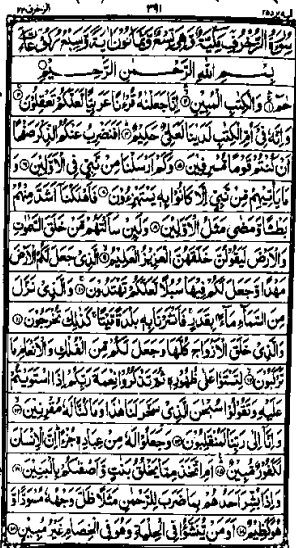 الزخرف ٤٣ ٣٩١ اليه يرد ٢٥
سُوْرَةُ الزُّخْرُفِ مَكِّيَّةٌ وَّهِيَ تِسْعٌ وَّثَمَانُوْنَ اٰيَةً وَّسَبْعُ رُكُوْعَاتٍ
بِسْمِ اللهِ الرَّحْمٰنِ الرَّحِيْمِ
حٰمٓ وَالْكِتٰبِ الْمُبِيْنِ اِنَّا جَعَلْنٰهُ قُرْءٰنًا عَرَبِيًّا لَّعَلَّكُمْ تَعْقِلُوْنَ
وَاِنَّهٗ فِيْٓ اُمِّ الْكِتٰبِ لَدَيْنَا لَعَلِيٌّ حَكِيْمٌ اَفَنَضْرِبُ عَنْكُمُ الذِّكْرَ صَفْحًا
اَنْ كُنْتُمْ قَوْمًا مُّسْرِفِيْنَ وَكَمْ اَرْسَلْنَا مِنْ نَّبِيٍّ فِي الْاَوَّلِيْنَ وَ
مَا يَاْتِيْهِمْ مِّنْ نَّبِيٍّ اِلَّا كَانُوْا بِهٖ يَسْتَهْزِءُوْنَ فَاَهْلَكْنَآ اَشَدَّ مِنْهُمْ
بَطْشًا وَّمَضٰى مَثَلُ الْاَوَّلِيْنَ وَلَئِنْ سَاَلْتَهُمْ مَّنْ خَلَقَ السَّمٰوٰتِ
وَالْاَرْضَ لَيَقُوْلُنَّ خَلَقَهُنَّ الْعَزِيْزُ الْعَلِيْمُ الَّذِيْ جَعَلَ لَكُمُ الْاَرْضَ
مَهْدًا وَّجَعَلَ لَكُمْ فِيْهَا سُبُلًا لَّعَلَّكُمْ تَهْتَدُوْنَ وَالَّذِيْ نَزَّلَ
مِنَ السَّمَآءِ مَآءً بِقَدَرٍ فَاَنْشَرْنَا بِهٖ بَلْدَةً مَّيْتًا كَذٰلِكَ تُخْرَجُوْنَ
وَالَّذِيْ خَلَقَ الْاَزْوَاجَ كُلَّهَا وَجَعَلَ لَكُمْ مِّنَ الْفُلْكِ وَالْاَنْعَامِ مَا
تَرْكَبُوْنَ لِتَسْتَوٗا عَلٰى ظُهُوْرِهٖ ثُمَّ تَذْكُرُوْا نِعْمَةَ رَبِّكُمْ اِذَا اسْتَوَيْتُمْ
عَلَيْهِ وَتَقُوْلُوْا سُبْحٰنَ الَّذِيْ سَخَّرَ لَنَا هٰذَا وَمَا كُنَّا لَهٗ مُقْرِنِيْنَ
وَاِنَّآ اِلٰى رَبِّنَا لَمُنْقَلِبُوْنَ وَجَعَلُوْا لَهٗ مِنْ عِبَادِهٖ جُزْءًا اِنَّ الْاِنْسَانَ
لَكَفُوْرٌ مُّبِيْنٌ اَمِ اتَّخَذَ مِمَّا يَخْلُقُ بَنٰتٍ وَّاَصْفٰىكُمْ بِالْبَنِيْنَ
وَاِذَا بُشِّرَ اَحَدُهُمْ بِمَا ضَرَبَ لِلرَّحْمٰنِ مَثَلًا ظَلَّ وَجْهُهٗ مُسْوَدًّا وَّ
هُوَ كَظِيْمٌ اَوَمَنْ يُّنَشَّؤُا فِي الْحِلْيَةِ وَهُوَ فِي الْخِصَامِ غَيْرُ مُبِيْنٍ